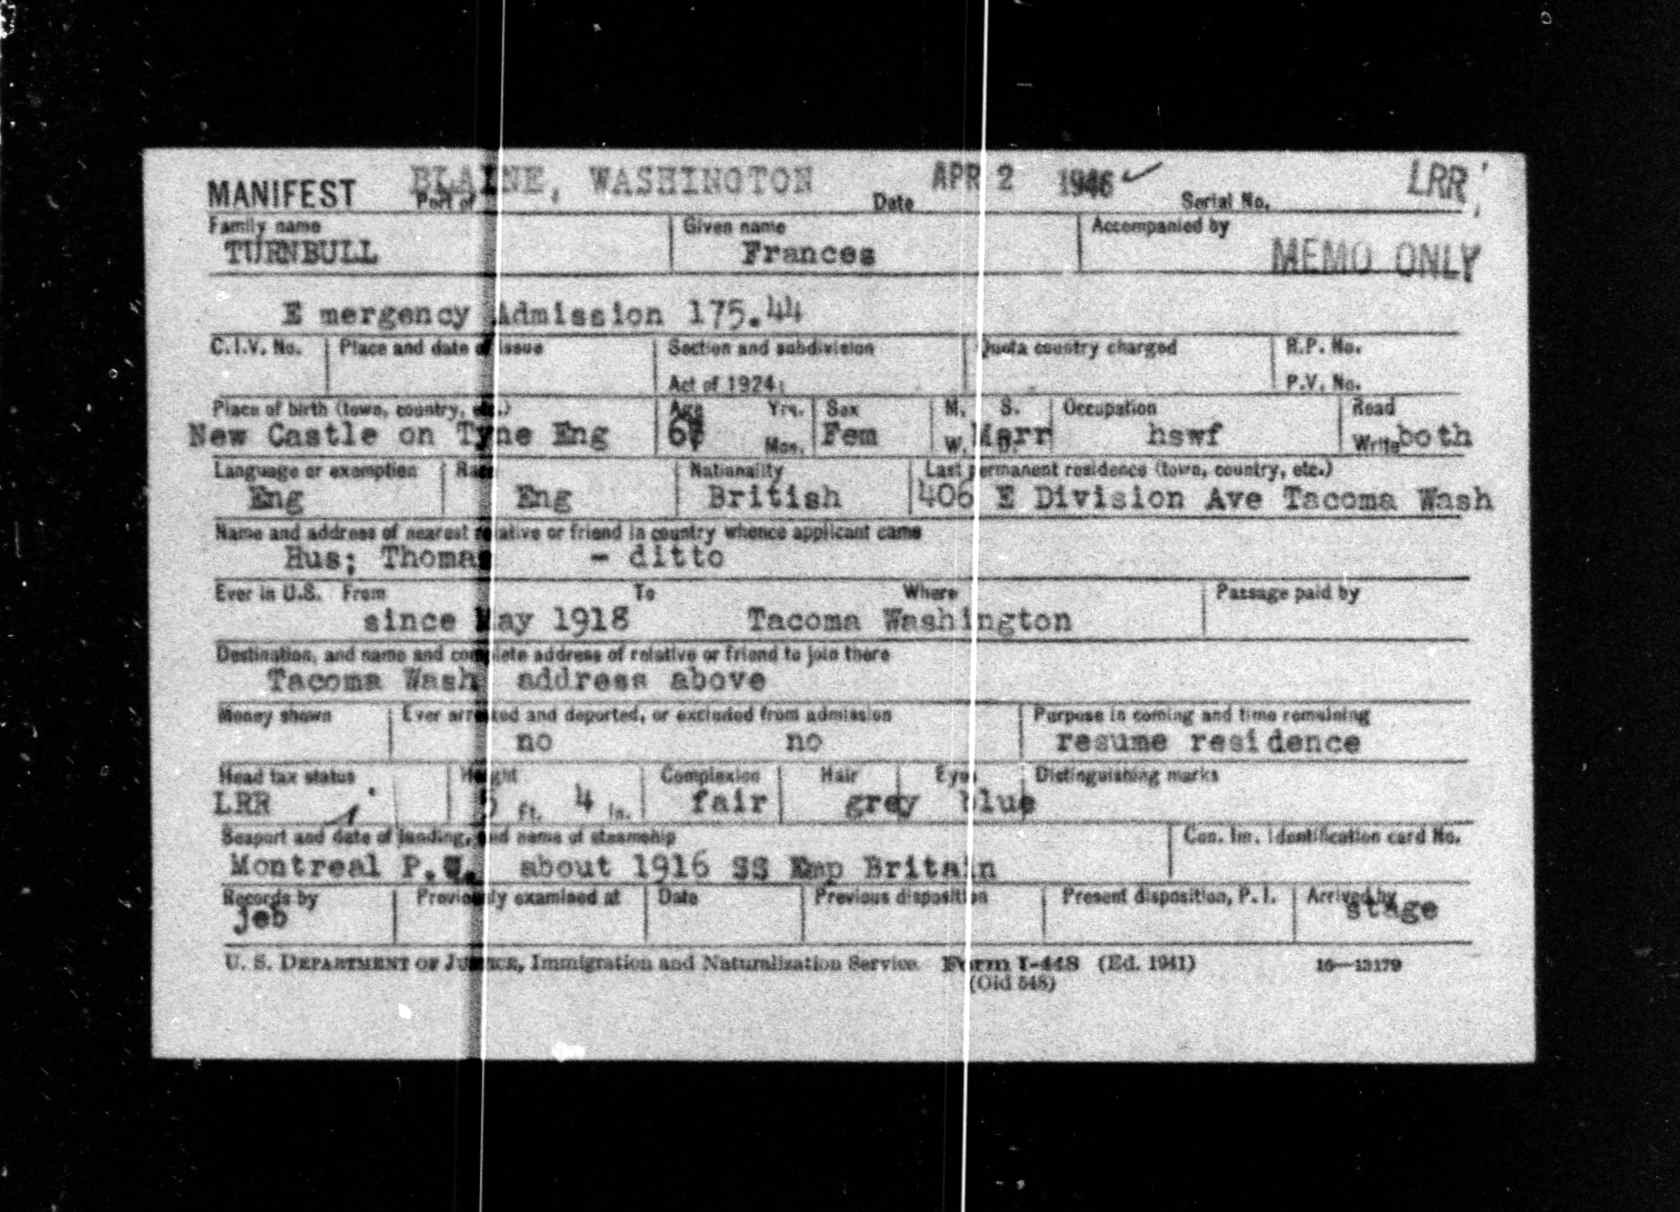 MANIFEST BLAINE, WASHINGTON APR 2 1946 LRR
Port of Date Serial No.
Family name Given name Accompanied by
TURNBULL Frances MEMO ONLY
E mergency Admission 175.44
C.I.V. No. Place and date of issue Section and subdivision Quota country charged R.P. No.
Act of 1924 P.V. No.
Place of birth (town, country, etc.) Age Yrs. Sex M. S. Occupation Read
New Castle on Tyne Eng Mos. Fem W. Marr D. hswf Write both
Language or exemption Race Nationality Last permanent residence (town, country, etc.)
Eng Eng British 406 E Division Ave Tacoma Wash
Name and address of nearest relative or friend in country whence applicant came
Hus; Thomas - ditto
Ever in U.S. From To Where Passage paid by
since May 1918 Tacoma Washington
Destination, and name and complete address of relative or friend to join there
Tacoma Wash address above
Money shown Ever arrested and deported, or excluded from admission Purpose in coming and time remaining
no no resume residence
Head tax status Height Complexion Hair Eyes Distinguishing marks
LRR 5 ft. 4 in. fair grey blue
Seaport and date of landing, and name of steamship Can. Im. Identification card No.
Montreal P. about 1916 SS Emp Britain
Records by Previously examined at Date Previous disposition Present disposition, P. I. Arrived by
jeb stage
U. S. DEPARTMENT OF JUSTICE, Immigration and Naturalization Service Form I-448 (Ed. 1941) 16—13179
(Old 548)